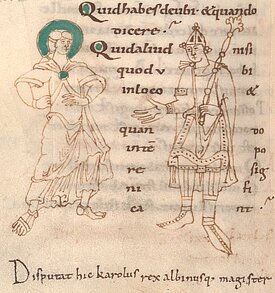 Quid habes de ubi · & quando
dicere ·
Quid aliud nisi
quod v bi
in loco &
quan vo
inte po
re sig
ni fi
ca nt ·
Disputat hic karolus rex albinusq; magister